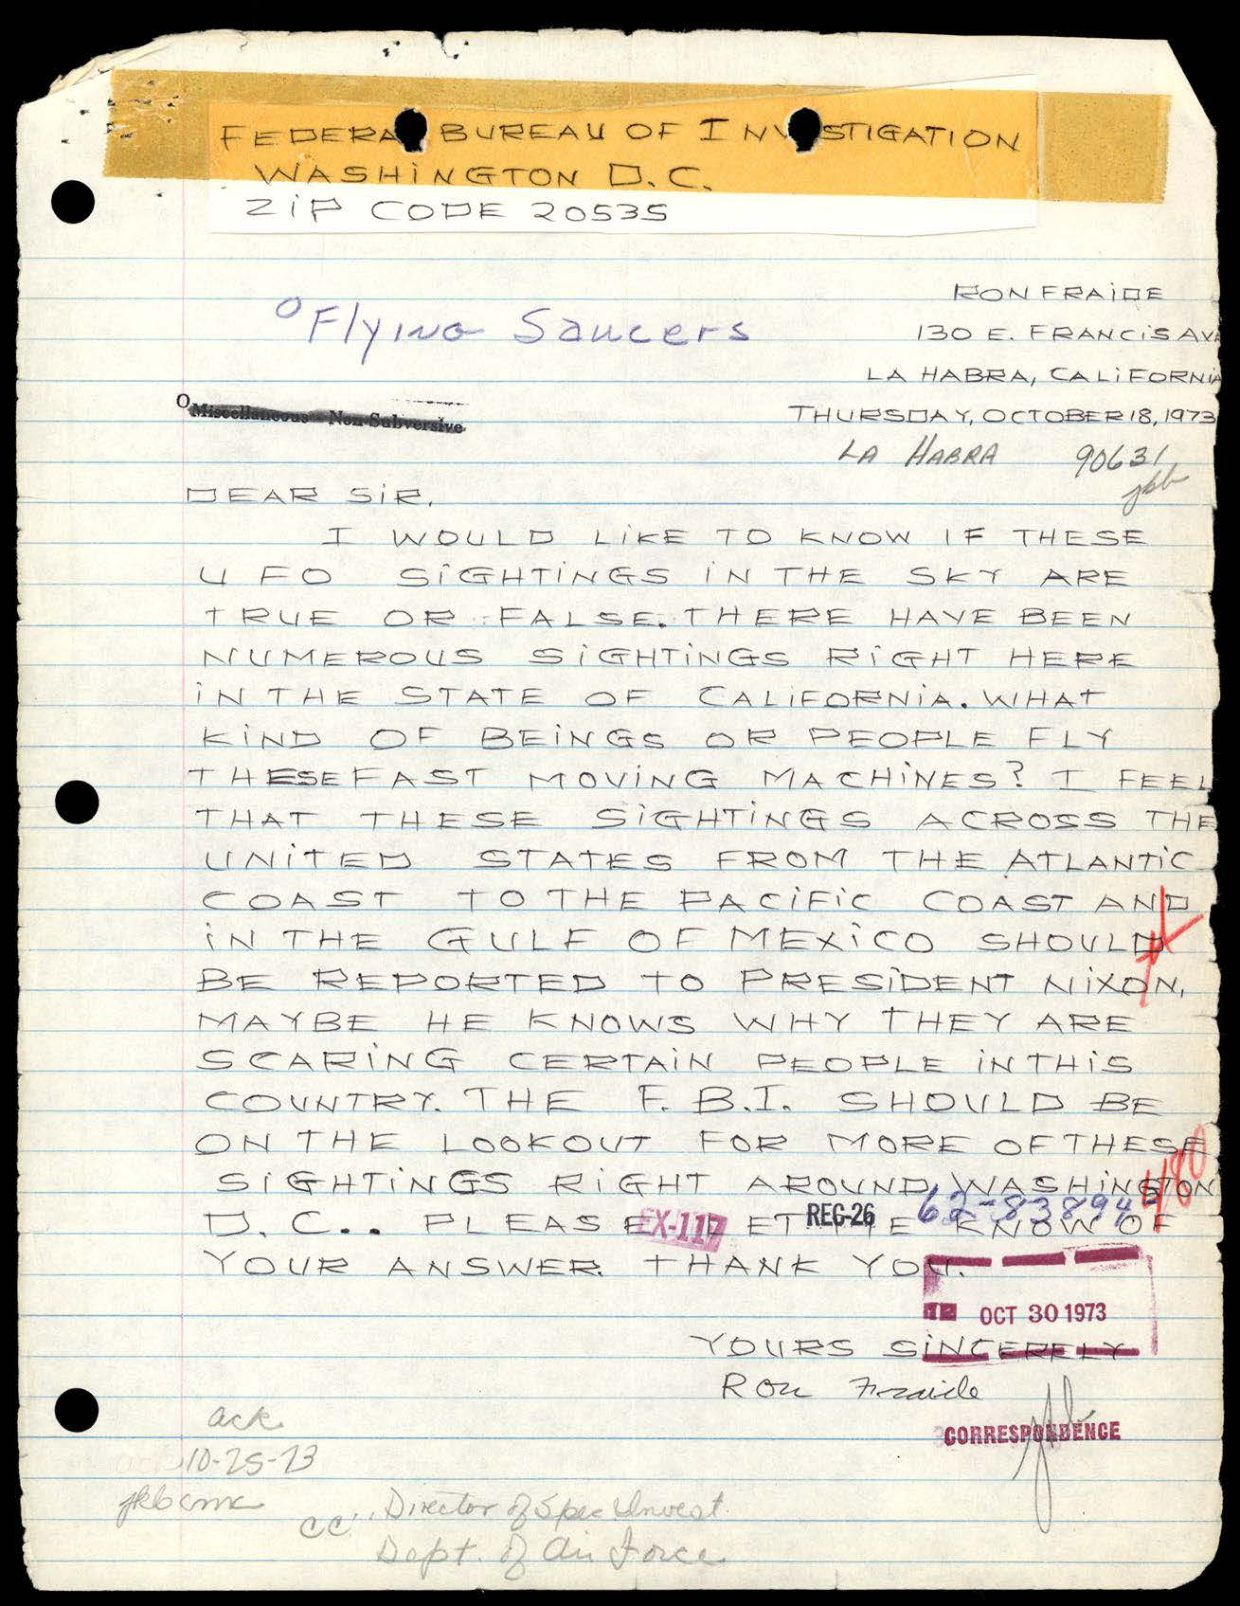 FEDERAL BUREAU OF INVESTIGATION
WASHINGTON D.C.
ZIP CODE 20535
RON FRAIDE
Flying Saucers
130 E. FRANCIS AV
LA HABRA, CALIFORNIA
Miscellaneous - Non-Subversive
THURSDAY, OCTOBER 18, 1973
LA HABRA 90631
DEAR SIR,
I WOULD LIKE TO KNOW IF THESE
UFO SIGHTINGS IN THE SKY ARE
TRUE OR FALSE. THERE HAVE BEEN
NUMEROUS SIGHTINGS RIGHT HERE
IN THE STATE OF CALIFORNIA. WHAT
KIND OF BEINGS OR PEOPLE FLY
THESE FAST MOVING MACHINES? I FEEL
THAT THESE SIGHTINGS ACROSS THE
UNITED STATES FROM THE ATLANTIC
COAST TO THE PACIFIC COAST AND
IN THE GULF OF MEXICO SHOULD
BE REPORTED TO PRESIDENT NIXON,
MAYBE HE KNOWS WHY THEY ARE
SCARING CERTAIN PEOPLE IN THIS
COUNTRY. THE F.B.I. SHOULD BE
ON THE LOOKOUT FOR MORE OF THESE
SIGHTINGS RIGHT AROUND WASHINGTON
480
D.C.. PLEASE LET ME KNOW OF
EX-117 REC-26 62-83894
YOUR ANSWER. THANK YOU.
12 OCT 30 1973
YOURS SINCERELY
Ron Fraide
ack
CORRESPONDENCE
10-25-73
jkb:cmc
cc: Director of Spec Invest.
Dept. of Air Force